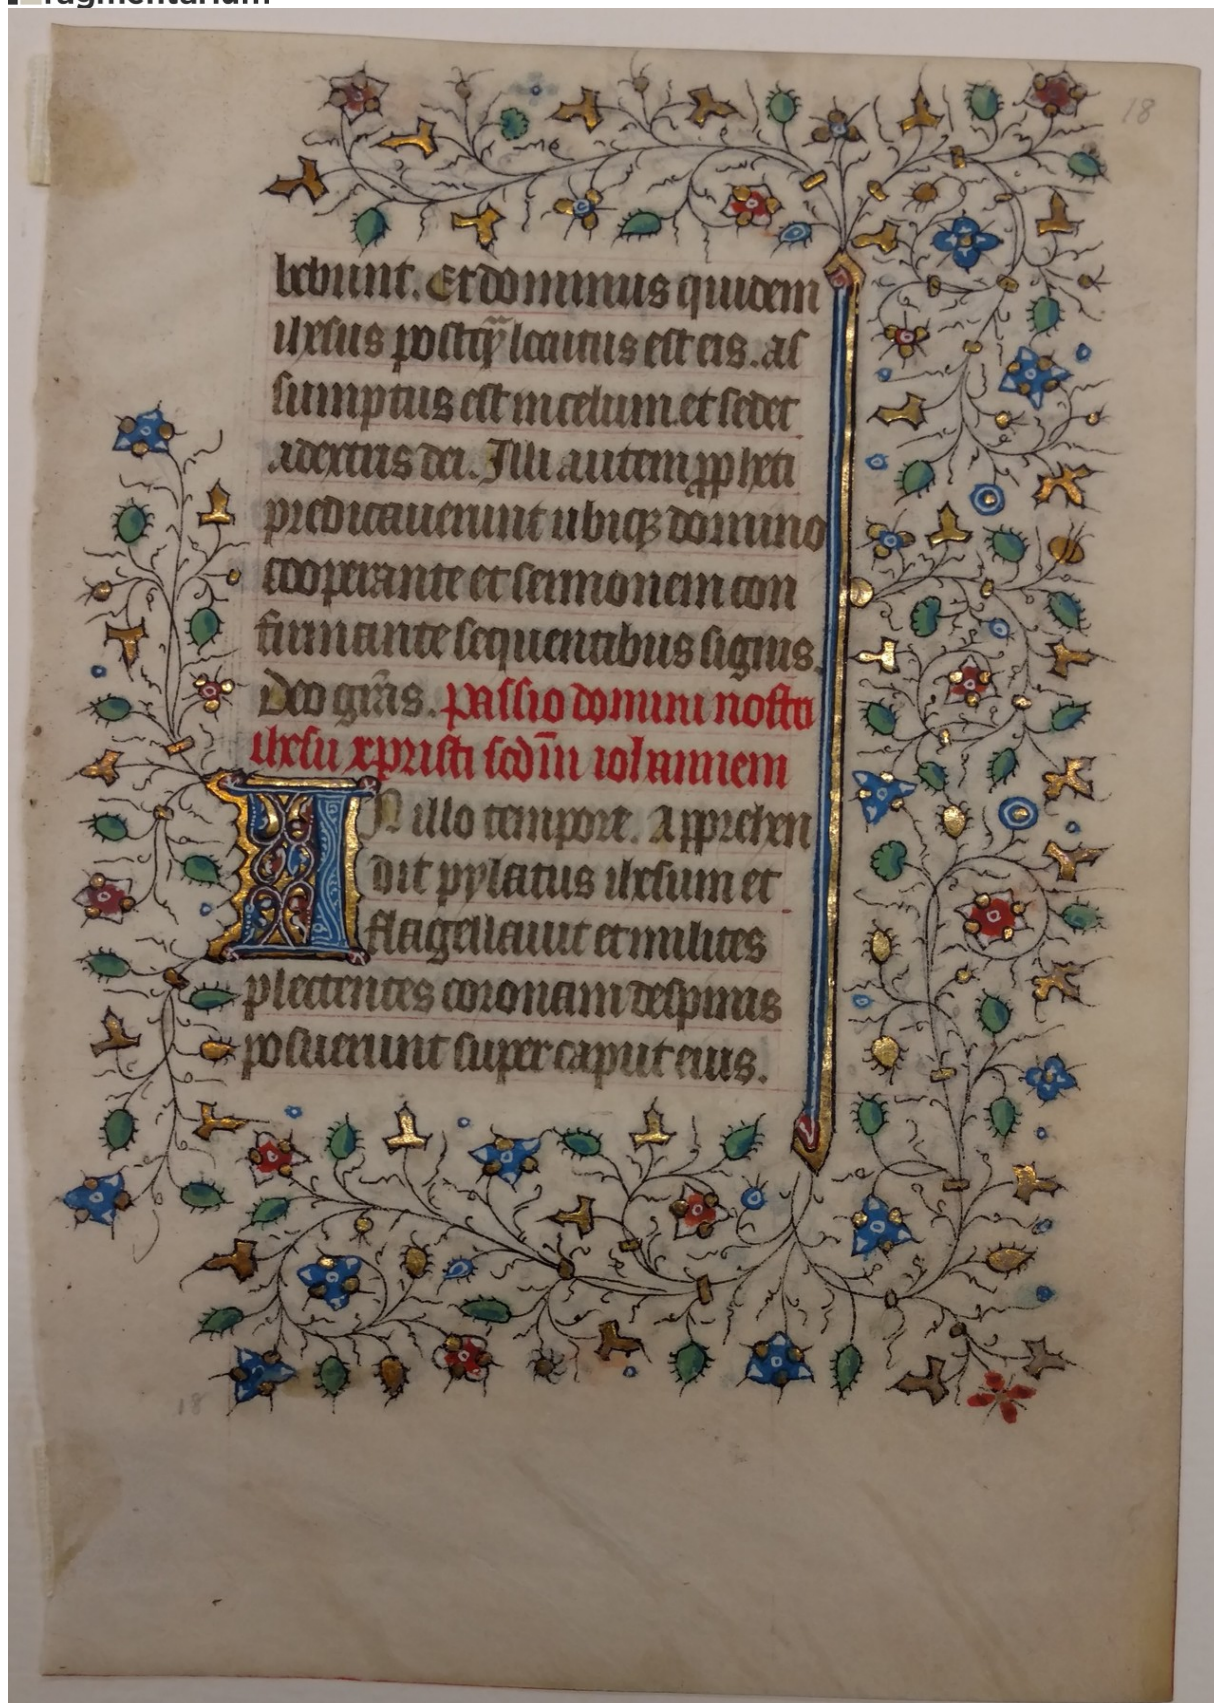 fragmentarium
18
bebunt. Et dominus quidem
ihesus postq̃ locutus est eis. as
sumptus est in celum. et sedet
a dextris dei. Illi autem ꝓphecti
predicauerunt ubiqꝫ domino
cooperante et sermonem con
firmante sequentibus signis.
Deo gr̃as. passio domini nostri
ihesu xpristi scd̃m iohannem
IN illo tempore. Apprehen
dit pylatus ihesum et
flagellauit et milites
plectentes coronam de spinis
posuerunt super caput eius.
18